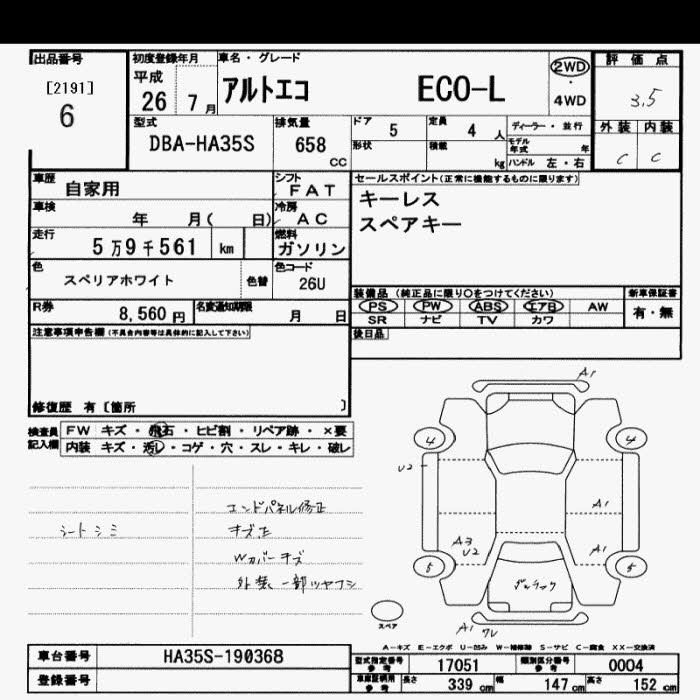 出品番号
[2191]
6
初度登録年月
平成
26 7月
車名・グレード
アルトエコ ECO-L
2WD
・
4WD
評価点
3.5
外装 内装
C C
型式
DBA-HA35S
排気量
658
CC
ドア 5
定員 4 人
形状
積載 kg
ディーラー・並行
モデル年式 年
ハンドル 左・右
車歴 自家用
シフト FAT
車検 年 月( 日)
冷房 AC
走行 5万9千561 km
燃料 ガソリン
色 スペリアホワイト 色替
色コード 26U
R券 8,560円
名変通知期限 月 日
セールスポイント(正常に機能するものに限ります)
キーレス
スペアキー
装備品(純正品に限り○をつけてください)
PS PW ABS エアB AW
SR ナビ TV カワ
新車保証書
有・無
後日品
注意事項申告欄(不具合内容等は具体的に記入して下さい)
修復歴 有〔箇所 〕
検査員記入欄
FW キズ・飛石・ヒビ割・リペア跡・×要
内装 キズ・汚レ・コゲ・穴・スレ・キレ・破レ
シートシミ
エンドパネル修正
キズ在
Wカバーキズ
外装一部ツヤフシ
A1
4 4
U2
A1
A3
U2
A1
5 5
スペア
A1 ワレ
A-キズ E-エクボ U-凹み W-補修跡 S-サビ C-腐食 XX-交換済
車台番号 HA35S-190368
登録番号
型式指定番号 参考 17051
類別区分番号 参考 0004
車庫証明用 参考 長さ 339 cm 幅 147 cm 高さ 152 cm